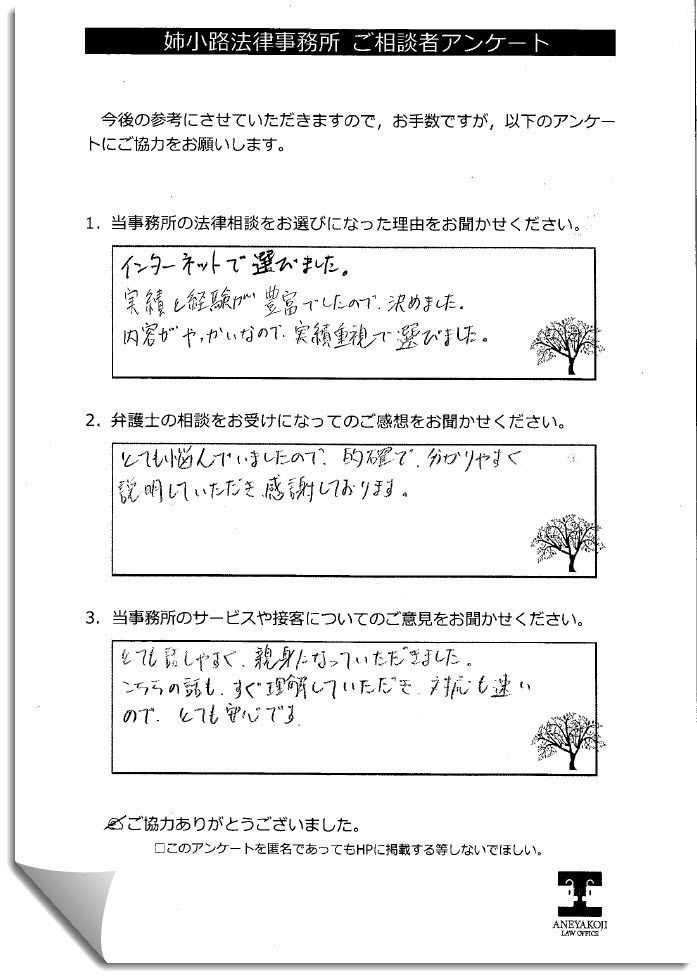 姉小路法律事務所 ご相談者アンケート
今後の参考にさせていただきますので，お手数ですが，以下のアンケー
トにご協力をお願いします。
1．当事務所の法律相談をお選びになった理由をお聞かせください。
インターネットで選びました。
実績と経験が豊富でしたので、決めました。
内容がやっかいなので、実績重視で選びました。
2．弁護士の相談をお受けになってのご感想をお聞かせください。
とても悩んでいましたので、的確で、分かりやすく
説明していただき、感謝しております。
3．当事務所のサービスや接客についてのご意見をお聞かせください。
とても話しやすく、親身になっていただきました。
こちらの話も、すぐ理解していただき、対応も速い
ので、とても安心です。
✍ご協力ありがとうございました。
□このアンケートを匿名であってもHPに掲載する等しないでほしい。
ANEYAKOJI
LAW OFFICE